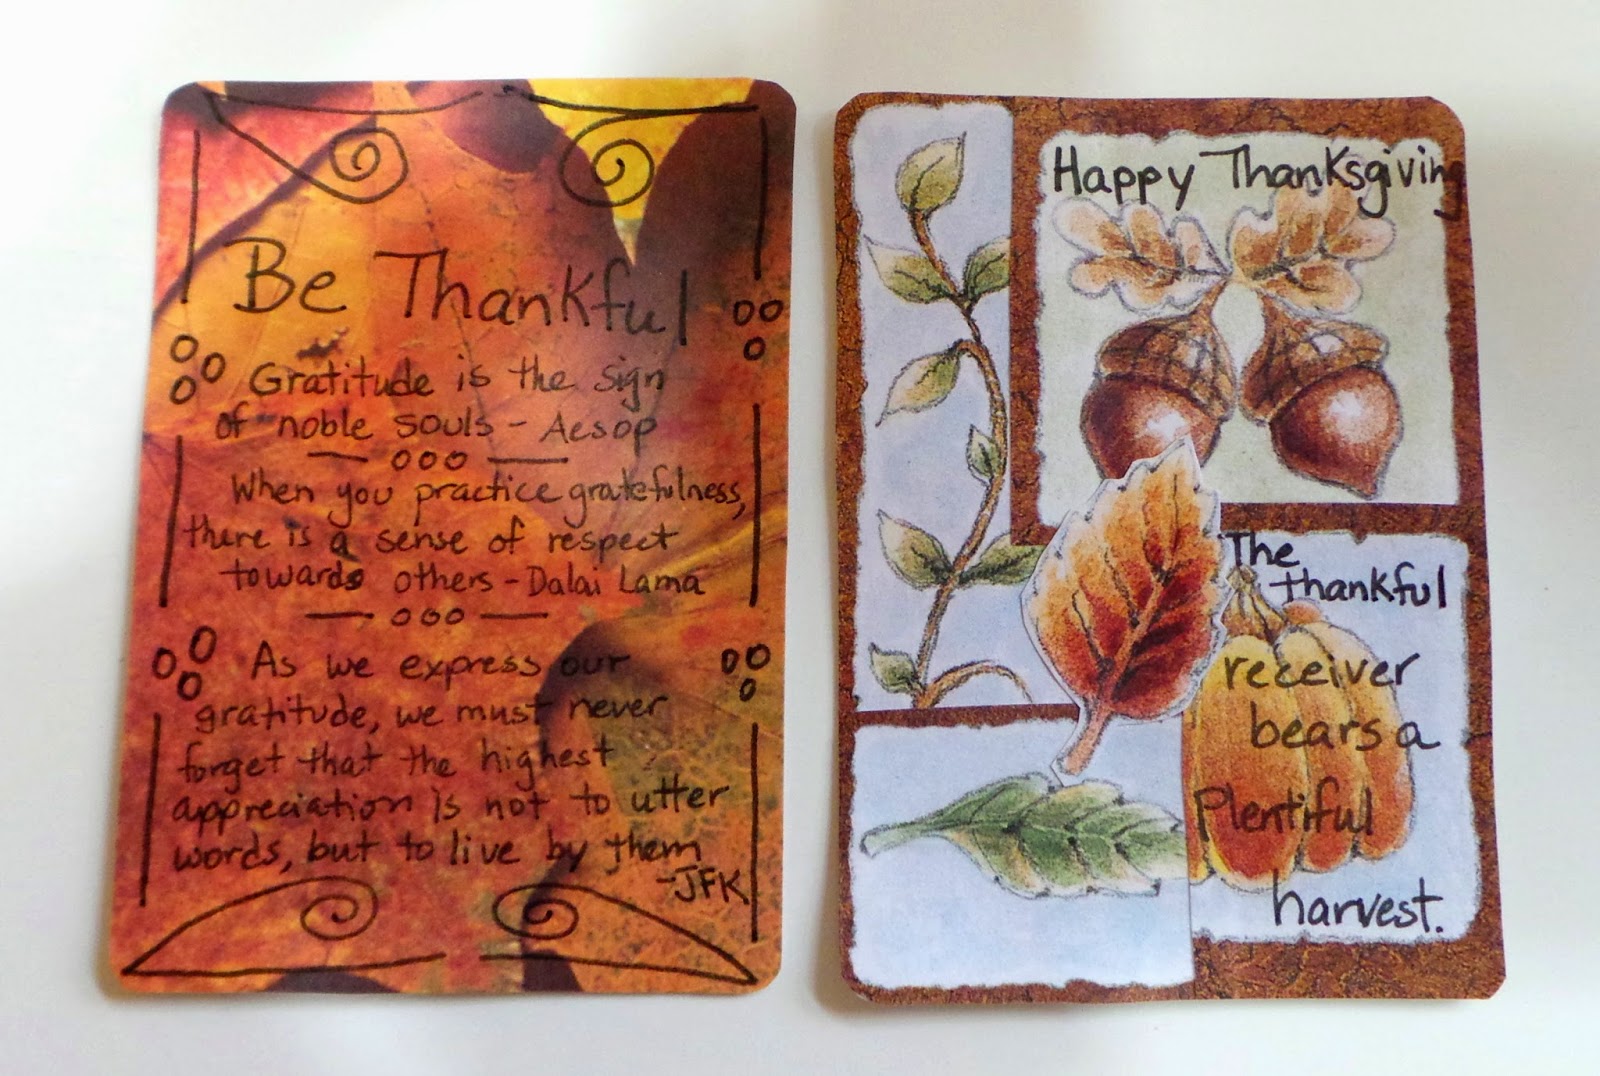 Be Thankful
Gratitude is the sign
of noble souls - Aesop
When you practice gratefulness,
there is a sense of respect
towards others - Dalai Lama
As we express our
gratitude, we must never
forget that the highest
appreciation is not to utter
words, but to live by them
- JFK
Happy Thanksgiving
The
thankful
receiver
bears a
Plentiful
harvest.